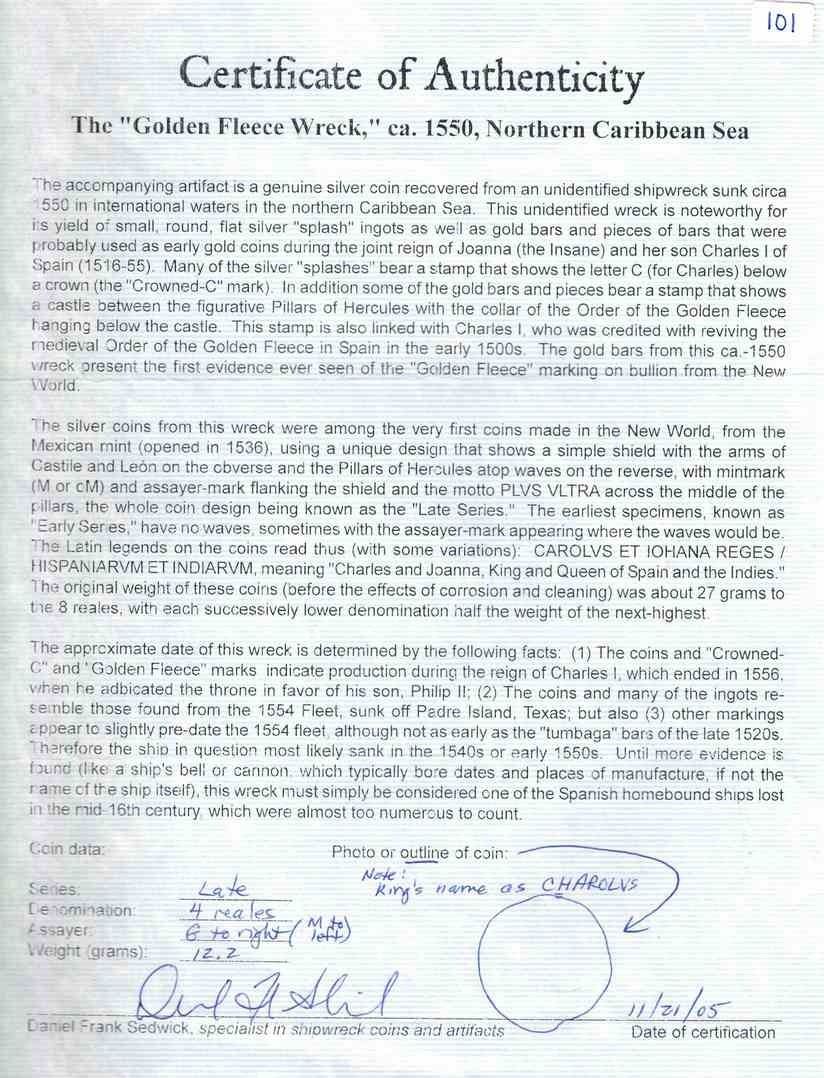 101
Certificate of Authenticity
The "Golden Fleece Wreck," ca. 1550, Northern Caribbean Sea
The accompanying artifact is a genuine silver coin recovered from an unidentified shipwreck sunk circa
1550 in international waters in the northern Caribbean Sea. This unidentified wreck is noteworthy for
its yield of small, round, flat silver "splash" ingots as well as gold bars and pieces of bars that were
probably used as early gold coins during the joint reign of Joanna (the Insane) and her son Charles I of
Spain (1516-55). Many of the silver "splashes" bear a stamp that shows the letter C (for Charles) below
a crown (the "Crowned-C" mark). In addition some of the gold bars and pieces bear a stamp that shows
a castle between the figurative Pillars of Hercules with the collar of the Order of the Golden Fleece
hanging below the castle. This stamp is also linked with Charles I, who was credited with reviving the
medieval Order of the Golden Fleece in Spain in the early 1500s. The gold bars from this ca.-1550
wreck present the first evidence ever seen of the "Golden Fleece" marking on bullion from the New
World.
The silver coins from this wreck were among the very first coins made in the New World, from the
Mexican mint (opened in 1536), using a unique design that shows a simple shield with the arms of
Castile and León on the obverse and the Pillars of Hercules atop waves on the reverse, with mintmark
(M or oM) and assayer-mark flanking the shield and the motto PLVS VLTRA across the middle of the
pillars, the whole coin design being known as the "Late Series." The earliest specimens, known as
"Early Series," have no waves, sometimes with the assayer-mark appearing where the waves would be.
The Latin legends on the coins read thus (with some variations): CAROLVS ET IOHANA REGES /
HISPANIARVM ET INDIARVM, meaning "Charles and Joanna, King and Queen of Spain and the Indies."
The original weight of these coins (before the effects of corrosion and cleaning) was about 27 grams to
the 8 reales, with each successively lower denomination half the weight of the next-highest.
The approximate date of this wreck is determined by the following facts: (1) The coins and "Crowned-
C" and "Golden Fleece" marks indicate production during the reign of Charles I, which ended in 1556,
when he adbicated the throne in favor of his son, Philip II; (2) The coins and many of the ingots re-
semble those found from the 1554 Fleet, sunk off Padre Island, Texas; but also (3) other markings
appear to slightly pre-date the 1554 fleet, although not as early as the "tumbaga" bars of the late 1520s.
Therefore the ship in question most likely sank in the 1540s or early 1550s. Until more evidence is
found (like a ship's bell or cannon, which typically bore dates and places of manufacture, if not the
name of the ship itself), this wreck must simply be considered one of the Spanish homebound ships lost
in the mid-16th century, which were almost too numerous to count.
Coin data: Photo or outline of coin:
Note:
King's name as CHAROLVS
Series: Late
Denomination: 4 reales
Assayer: G to right (M to left)
Weight (grams): 12.2
11/21/05
Daniel Frank Sedwick, specialist in shipwreck coins and artifacts Date of certification